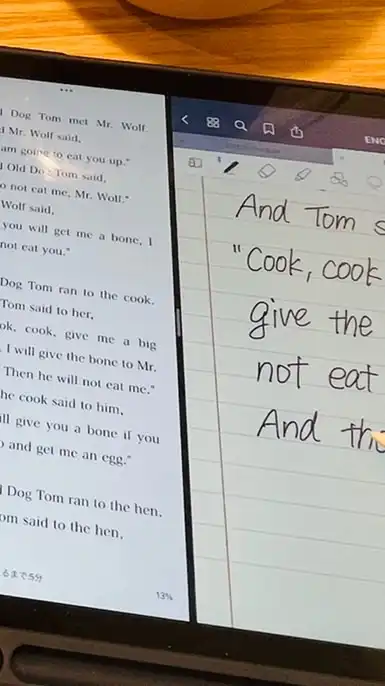 Dog Tom met Mr. Wolf.
Mr. Wolf said,
am going to eat you up."
Old Dog Tom said,
not eat me, Mr. Wolf."
Wolf said,
you will get me a bone, I
not eat you."
Dog Tom ran to the cook.
Tom said to her,
cook, give me a big
I will give the bone to Mr.
Then he will not eat me."
he cook said to him,
ill give you a bone if you
and get me an egg."
Dog Tom ran to the hen.
om said to the hen,
るまで5分
13%
ENG
And Tom s
"Cook, cook
give the
not eat
And the